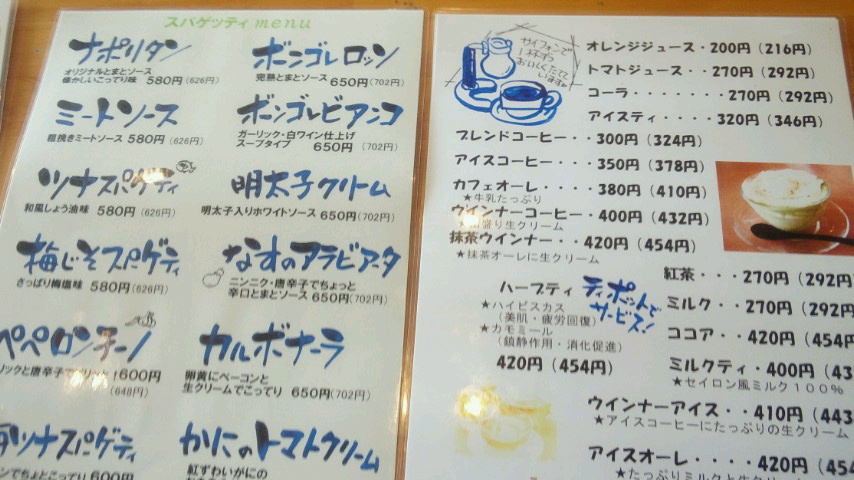 スパゲッティ menu
ナポリタン
オリジナルとまとソース
懐かしいこってり味 580円(626円)
ミートソース
粗挽きミートソース 580円(626円)
ツナスパゲティ
和風しょう油味 580円(626円)
梅じそスパゲティ
さっぱり梅塩味 580円(626円)
ペペロンチーノ
リックと唐辛子で 600円
(648円)
ツナスパゲティ
ンでちょとこってり 600円
ボンゴレロッソ
完熟とまとソース 650円(702円)
ボンゴレビアンコ
ガーリック・白ワイン仕上げ
スープタイプ 650円 (702円)
明太子クリーム
明太子入りホワイトソース 650円(702円)
なすのアラビアータ
ニンニク・唐辛子でちょっと
辛口とまとソース 650円(702円)
カルボナーラ
卵黄にベーコンと
生クリームでこってり 650円(702円)
かにのトマトクリーム
紅ずわいがにの
サイフォンで
1杯ずつ
おいしくたてて
います
オレンジジュース・200円(216円)
トマトジュース・・270円(292円)
コーラ・・・・・・・・270円(292円)
アイスティ・・・・・320円(346円)
ブレンドコーヒー・・300円(324円)
アイスコーヒー・・・350円(378円)
カフェオーレ・・・・380円(410円)
★牛乳たっぷり
ウインナーコーヒー・400円(432円)
盛り生クリーム
抹茶ウインナー・・420円(454円)
★抹茶オーレに生クリーム
ハーブティ
ティポットで
サービス!
★ハイビスカス
(美肌・疲労回復)
★カモミール
(鎮静作用・消化促進)
420円(454円)
紅茶・・・270円(292円)
ミルク・・270円(292円
ココア・・420円(454円
ミルクティ・400円(43
★セイロン風ミルク100%
ウインナーアイス・・410円(443
★アイスコーヒーにたっぷりの生クリーム
アイスオーレ・・・・420円(454
★たっぷりミルクと生クリー